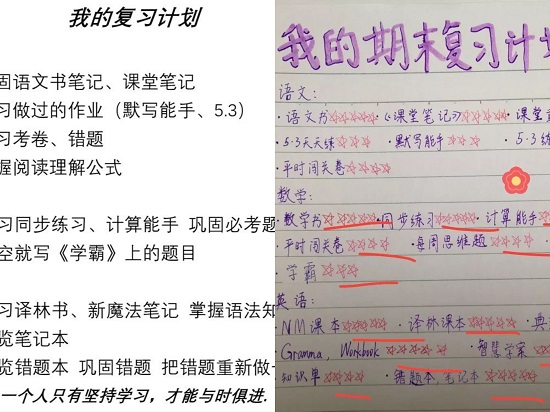 我的复习计划
固语文书笔记、课堂笔记
习做过的作业（默写能手、5.3）
习考卷、错题
握阅读理解公式
习同步练习、计算能手 巩固必考题
空就写《学霸》上的题目
习译林书、新魔法笔记 掌握语法知
览笔记本
览错题本 巩固错题 把错题重新做一
一个人只有坚持学习，才能与时俱进.
我的期末复习计
语文：
·语文书☆☆☆☆☆ ·《课堂笔记》☆☆☆☆☆ ·课堂
·5·3天天练☆☆☆ ·默写能手☆☆☆ ·5·3
·平时闯关卷☆☆☆☆☆
数学：
·数学书☆☆☆☆☆ ·同步练习☆☆☆☆ ·计算能手☆
·平时闯关卷☆☆☆☆ ·每周思维题☆☆☆☆
·学霸☆☆☆
英语：
·NM课本☆☆☆☆ ·译林课本☆☆☆☆☆ ·典
·Gramma, Workbook☆☆☆☆☆ ·智慧学案
·知识单☆☆☆☆ ·错题本,笔记本☆☆☆☆